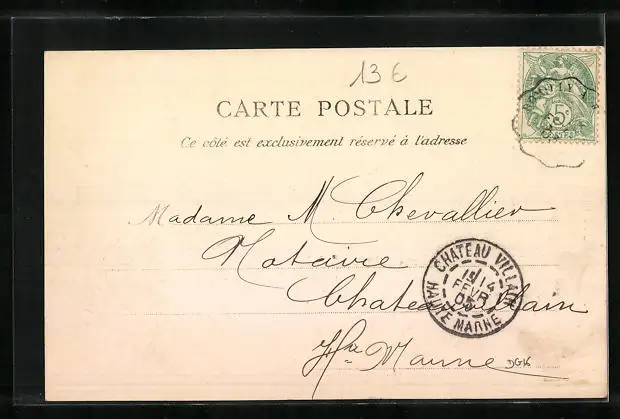 13€
CARTE POSTALE
Ce côté est exclusivement réservé à l'adresse
5c
Madame M. Chevallier
Notaire
CHATEAU VILLAIN
14
FEVR
03
HAUTE MARNE
Chateauvillain
Hte Marne
DG16